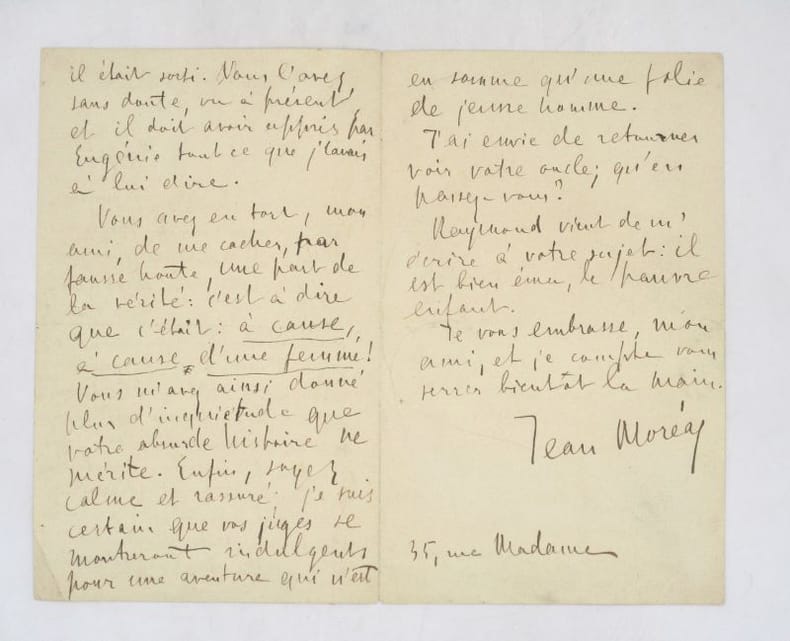 il était sorti. Vous l'avez
sans doute, vu à présent,
et il doit avoir appris par
Eugénie tout ce que j'avais
à lui dire.
Vous avez eu tort, mon
ami, de me cacher, par
fausse honte, une part de
la vérité: c'est à dire
que c'était: à cause,
à cause d'une femme!
Vous m'avez ainsi donné
plus d'inquiétude que
votre absurde histoire ne
mérite. Enfin, soyez
calme et rassuré; je suis
certain que vos juges se
montreront indulgents
pour une aventure qui n'est
en somme qu'une folie
de jeune homme.
J'ai envie de retourner
voir votre oncle; qu'en
pensez-vous?
Raymond vient de m'
écrire à votre sujet: il
est bien ému, le pauvre
enfant.
Je vous embrasse, mon
ami, et je compte vous
serrer bientôt la main.
Jean Moréas
35, rue Madame